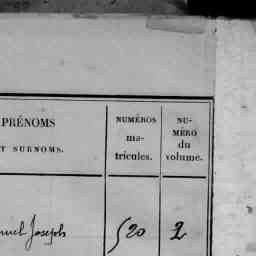 PRÉNOMS
ET SURNOMS.
NUMÉROS
ma-
tricules.
NU-
MÉRO
du
volume.
nuel Joseph 520 2